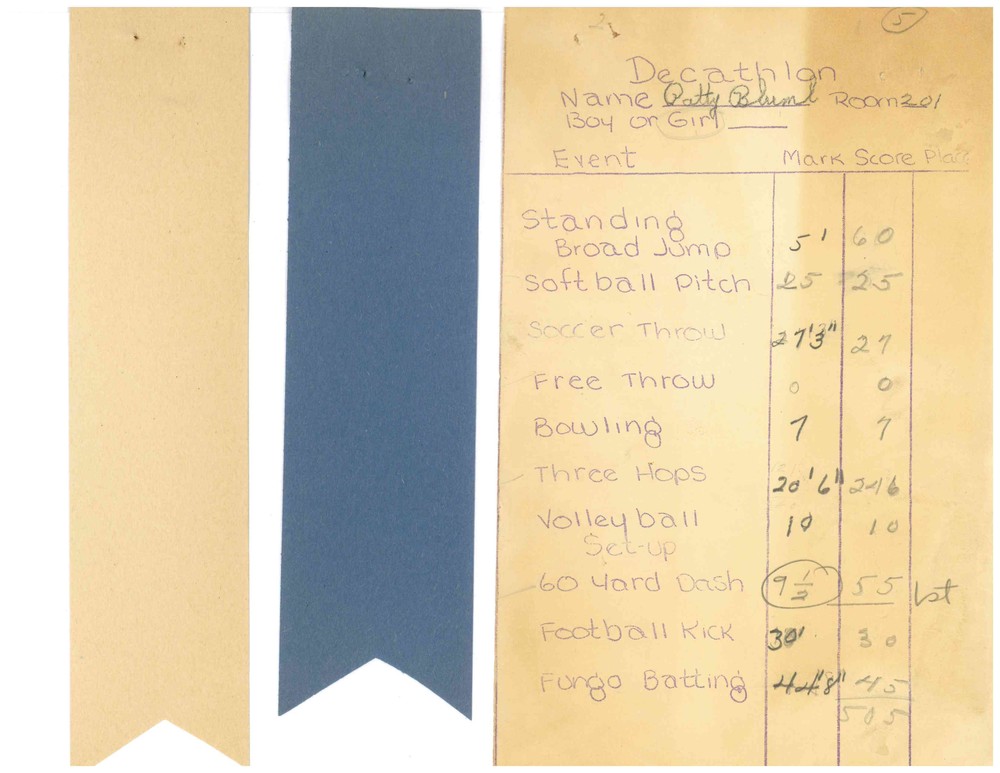 5
Decathlon
Name Patty Bluml Room 201
Boy or Girl
Event Mark Score Place
Standing
Broad Jump 5' 60
Softball Pitch 25 25
Soccer Throw 27'3" 27
Free Throw 0 0
Bowling 7 7
Three Hops 20'6" 246
Volleyball 10 10
Set-up
60 Yard Dash 9 1/2 55 1st
Football Kick 30' 30
Fungo Batting 44'8" 45
505